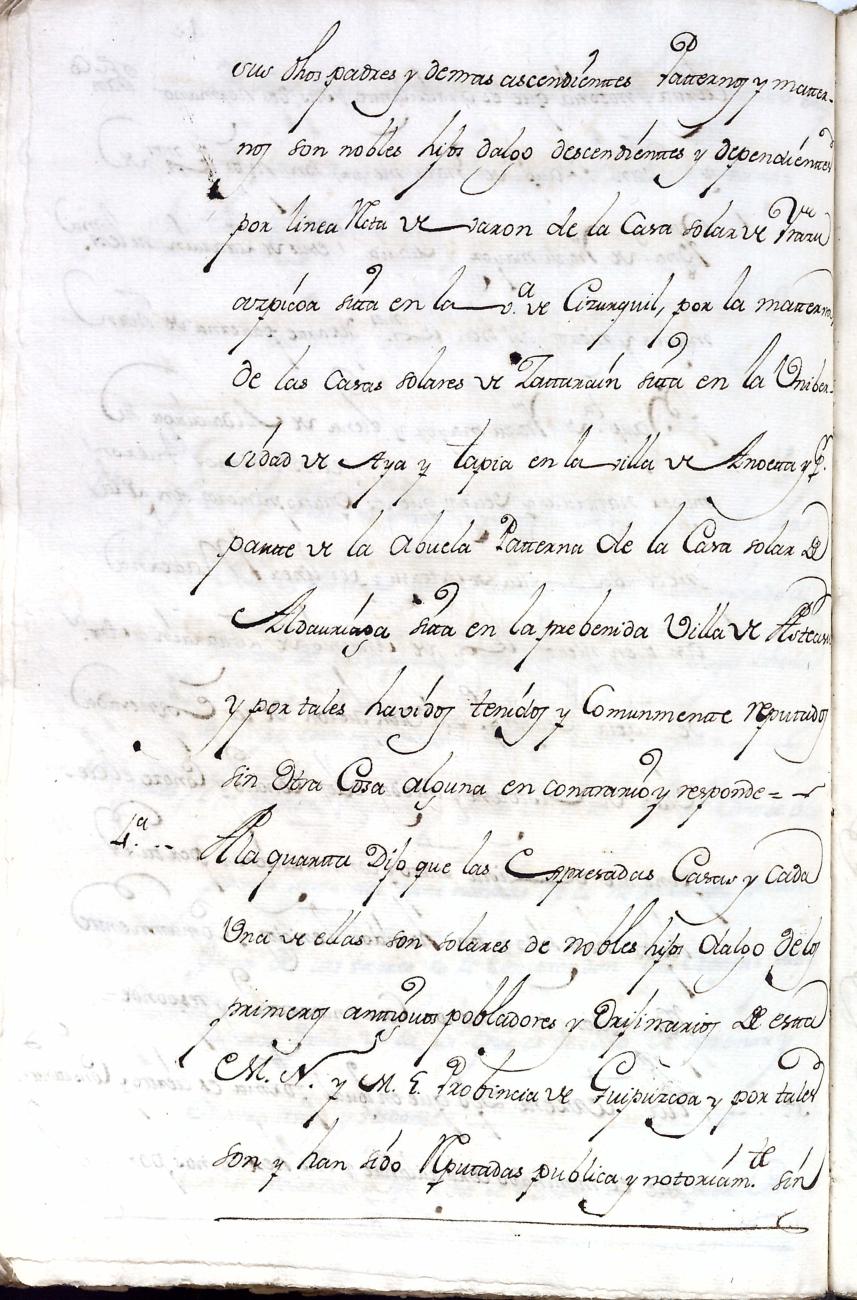 sus dhos padres y demas ascendientes Patternos y matter-
nos son nobles hijos dalgo descendientes y dependientes
por linea Recta de varon de la Casa solar de
azpicoa sitta en la v.ª de Cizurquil, por la matterna,
de las Casas solares de Zatturain sitta en la Vniber-
sidad de Aya y tapia en la villa de Anoetta y Pr.
partte de la Abuela Patterna de la Casa solar de
Aldauriaga sitta en la prebenida Villa de Asteasu
y por tales havidos tenidos y Comunmentte Reputados
sin Otra Cosa alguna en contrario y responde= -
4.ª - A la quartta Dijo que las Espresadas Casas y Cada
Vna de ellas son solares de nobles hijos dalgo de los
primeros anttiguos pobladores y Orijinarios de estta
M. N. y M. L. Probincia de Guipuzcoa y por tales
son y han sido Reputadas publica y notoriam.te sin